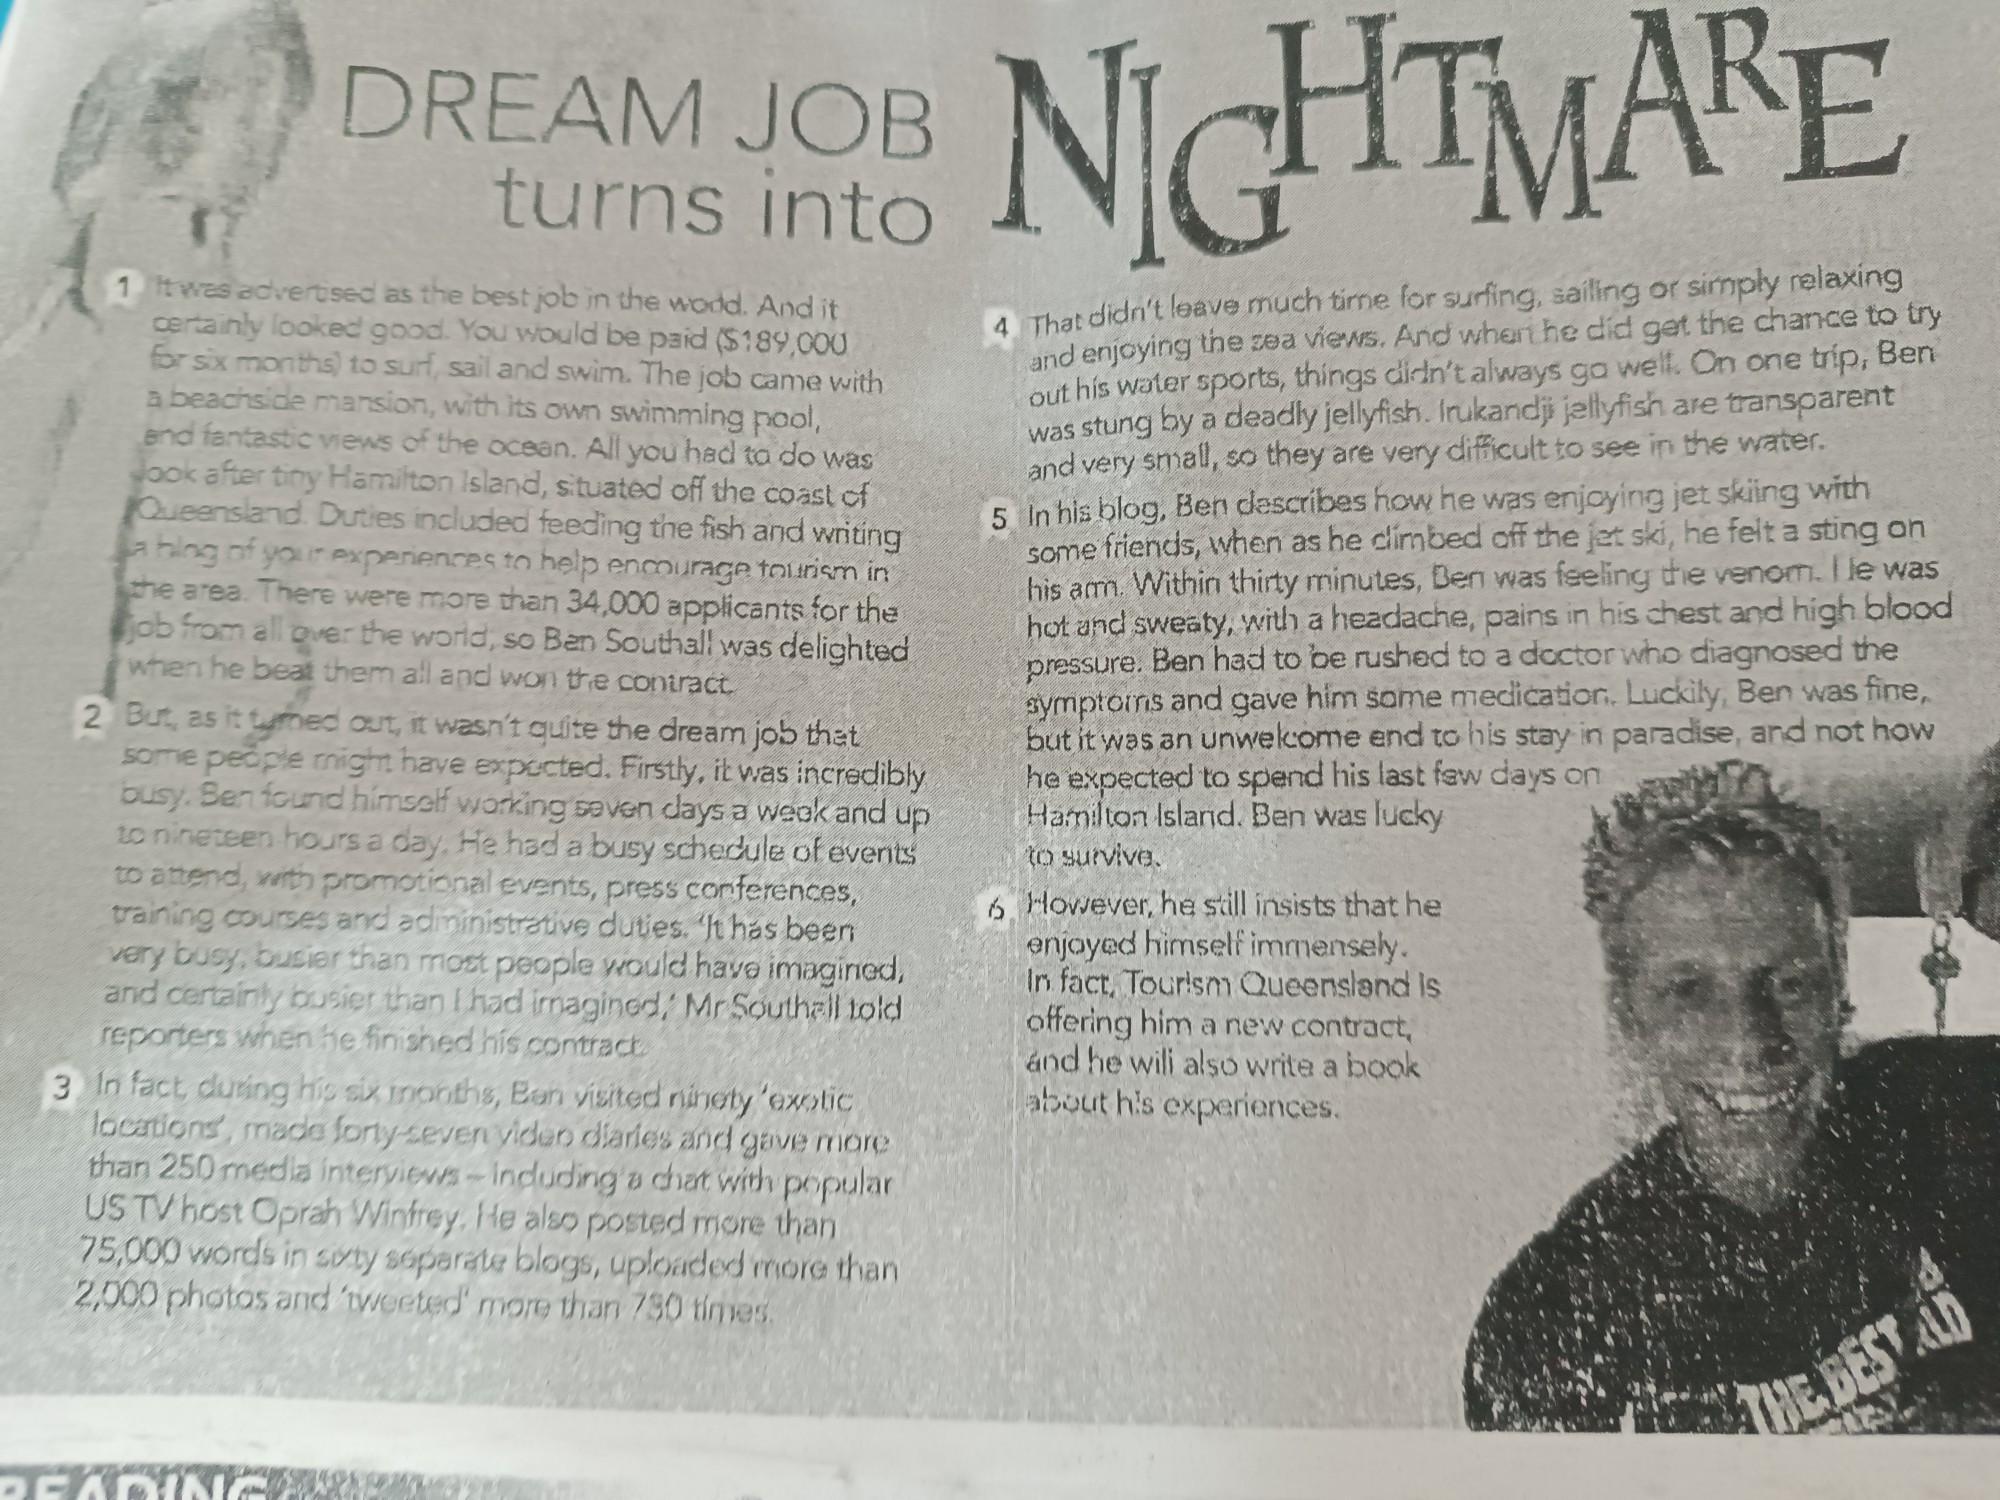 DREAM JOB
turns into
NIGHTMARE
1 It was advertised as the best job in the world. And it
certainly looked good. You would be paid ($189,000
for six months) to surf, sail and swim. The job came with
a beachside mansion, with its own swimming pool,
and fantastic views of the ocean. All you had to do was
look after tiny Hamilton Island, situated off the coast of
Queensland. Duties included feeding the fish and writing
a blog of your experiences to help encourage tourism in
the area. There were more than 34,000 applicants for the
job from all over the world, so Ben Southall was delighted
when he beat them all and won the contract.
2 But, as it turned out, it wasn't quite the dream job that
some people might have expected. Firstly, it was incredibly
busy. Ben found himself working seven days a week and up
to nineteen hours a day. He had a busy schedule of events
to attend, with promotional events, press conferences,
training courses and administrative duties. 'It has been
very busy, busier than most people would have imagined,
and certainly busier than I had imagined,' Mr Southall told
reporters when he finished his contract.
3 In fact, during his six months, Ben visited ninety 'exotic
locations', made forty-seven video diaries and gave more
than 250 media interviews – including a chat with popular
US TV host Oprah Winfrey. He also posted more than
75,000 words in sixty separate blogs, uploaded more than
2,000 photos and 'tweeted' more than 730 times.
4 That didn't leave much time for surfing, sailing or simply relaxing
and enjoying the sea views. And when he did get the chance to try
out his water sports, things didn't always go well. On one trip, Ben
was stung by a deadly jellyfish. Irukandji jellyfish are transparent
and very small, so they are very difficult to see in the water.
5 In his blog, Ben describes how he was enjoying jet skiing with
some friends, when as he climbed off the jet ski, he felt a sting on
his arm. Within thirty minutes, Ben was feeling the venom. He was
hot and sweaty, with a headache, pains in his chest and high blood
pressure. Ben had to be rushed to a doctor who diagnosed the
symptoms and gave him some medication. Luckily, Ben was fine,
but it was an unwelcome end to his stay in paradise, and not how
he expected to spend his last few days on
Hamilton Island. Ben was lucky
to survive.
6 However, he still insists that he
enjoyed himself immensely.
In fact, Tourism Queensland is
offering him a new contract,
and he will also write a book
about his experiences.
THE BEST
READING